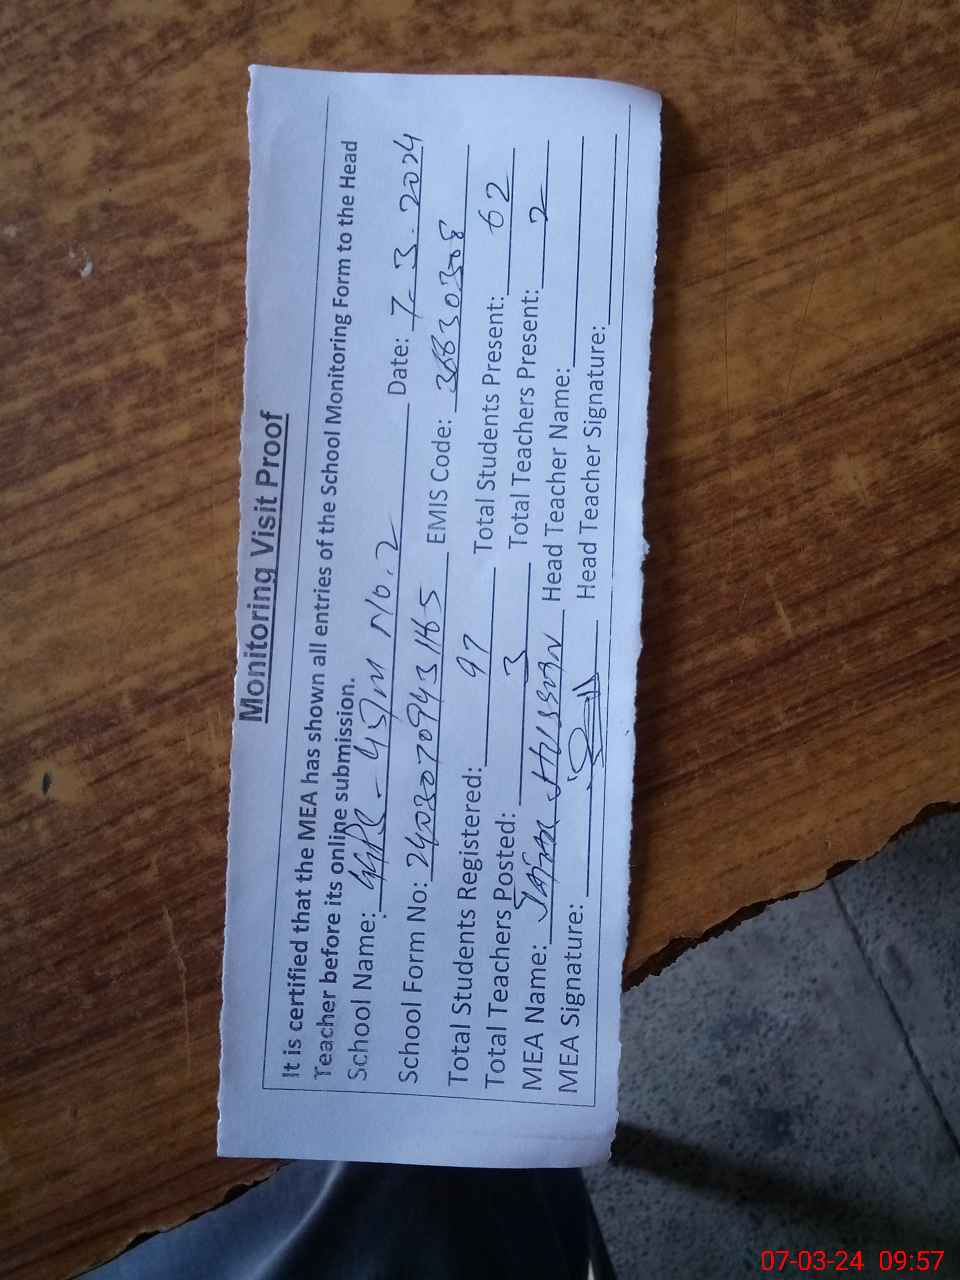 Monitoring Visit Proof
It is certified that the MEA has shown all entries of the School Monitoring Form to the Head
Teacher before its online submission.
School Name: GGPS - 45/M No.2 Date: 7-3-2024
School Form No: EMIS Code: 36630308
Total Students Registered: 97 Total Students Present: 62
Total Teachers Posted: 3 Total Teachers Present: 2
MEA Name: Hussain Head Teacher Name:
MEA Signature: Head Teacher Signature:
07-03-24 09:57